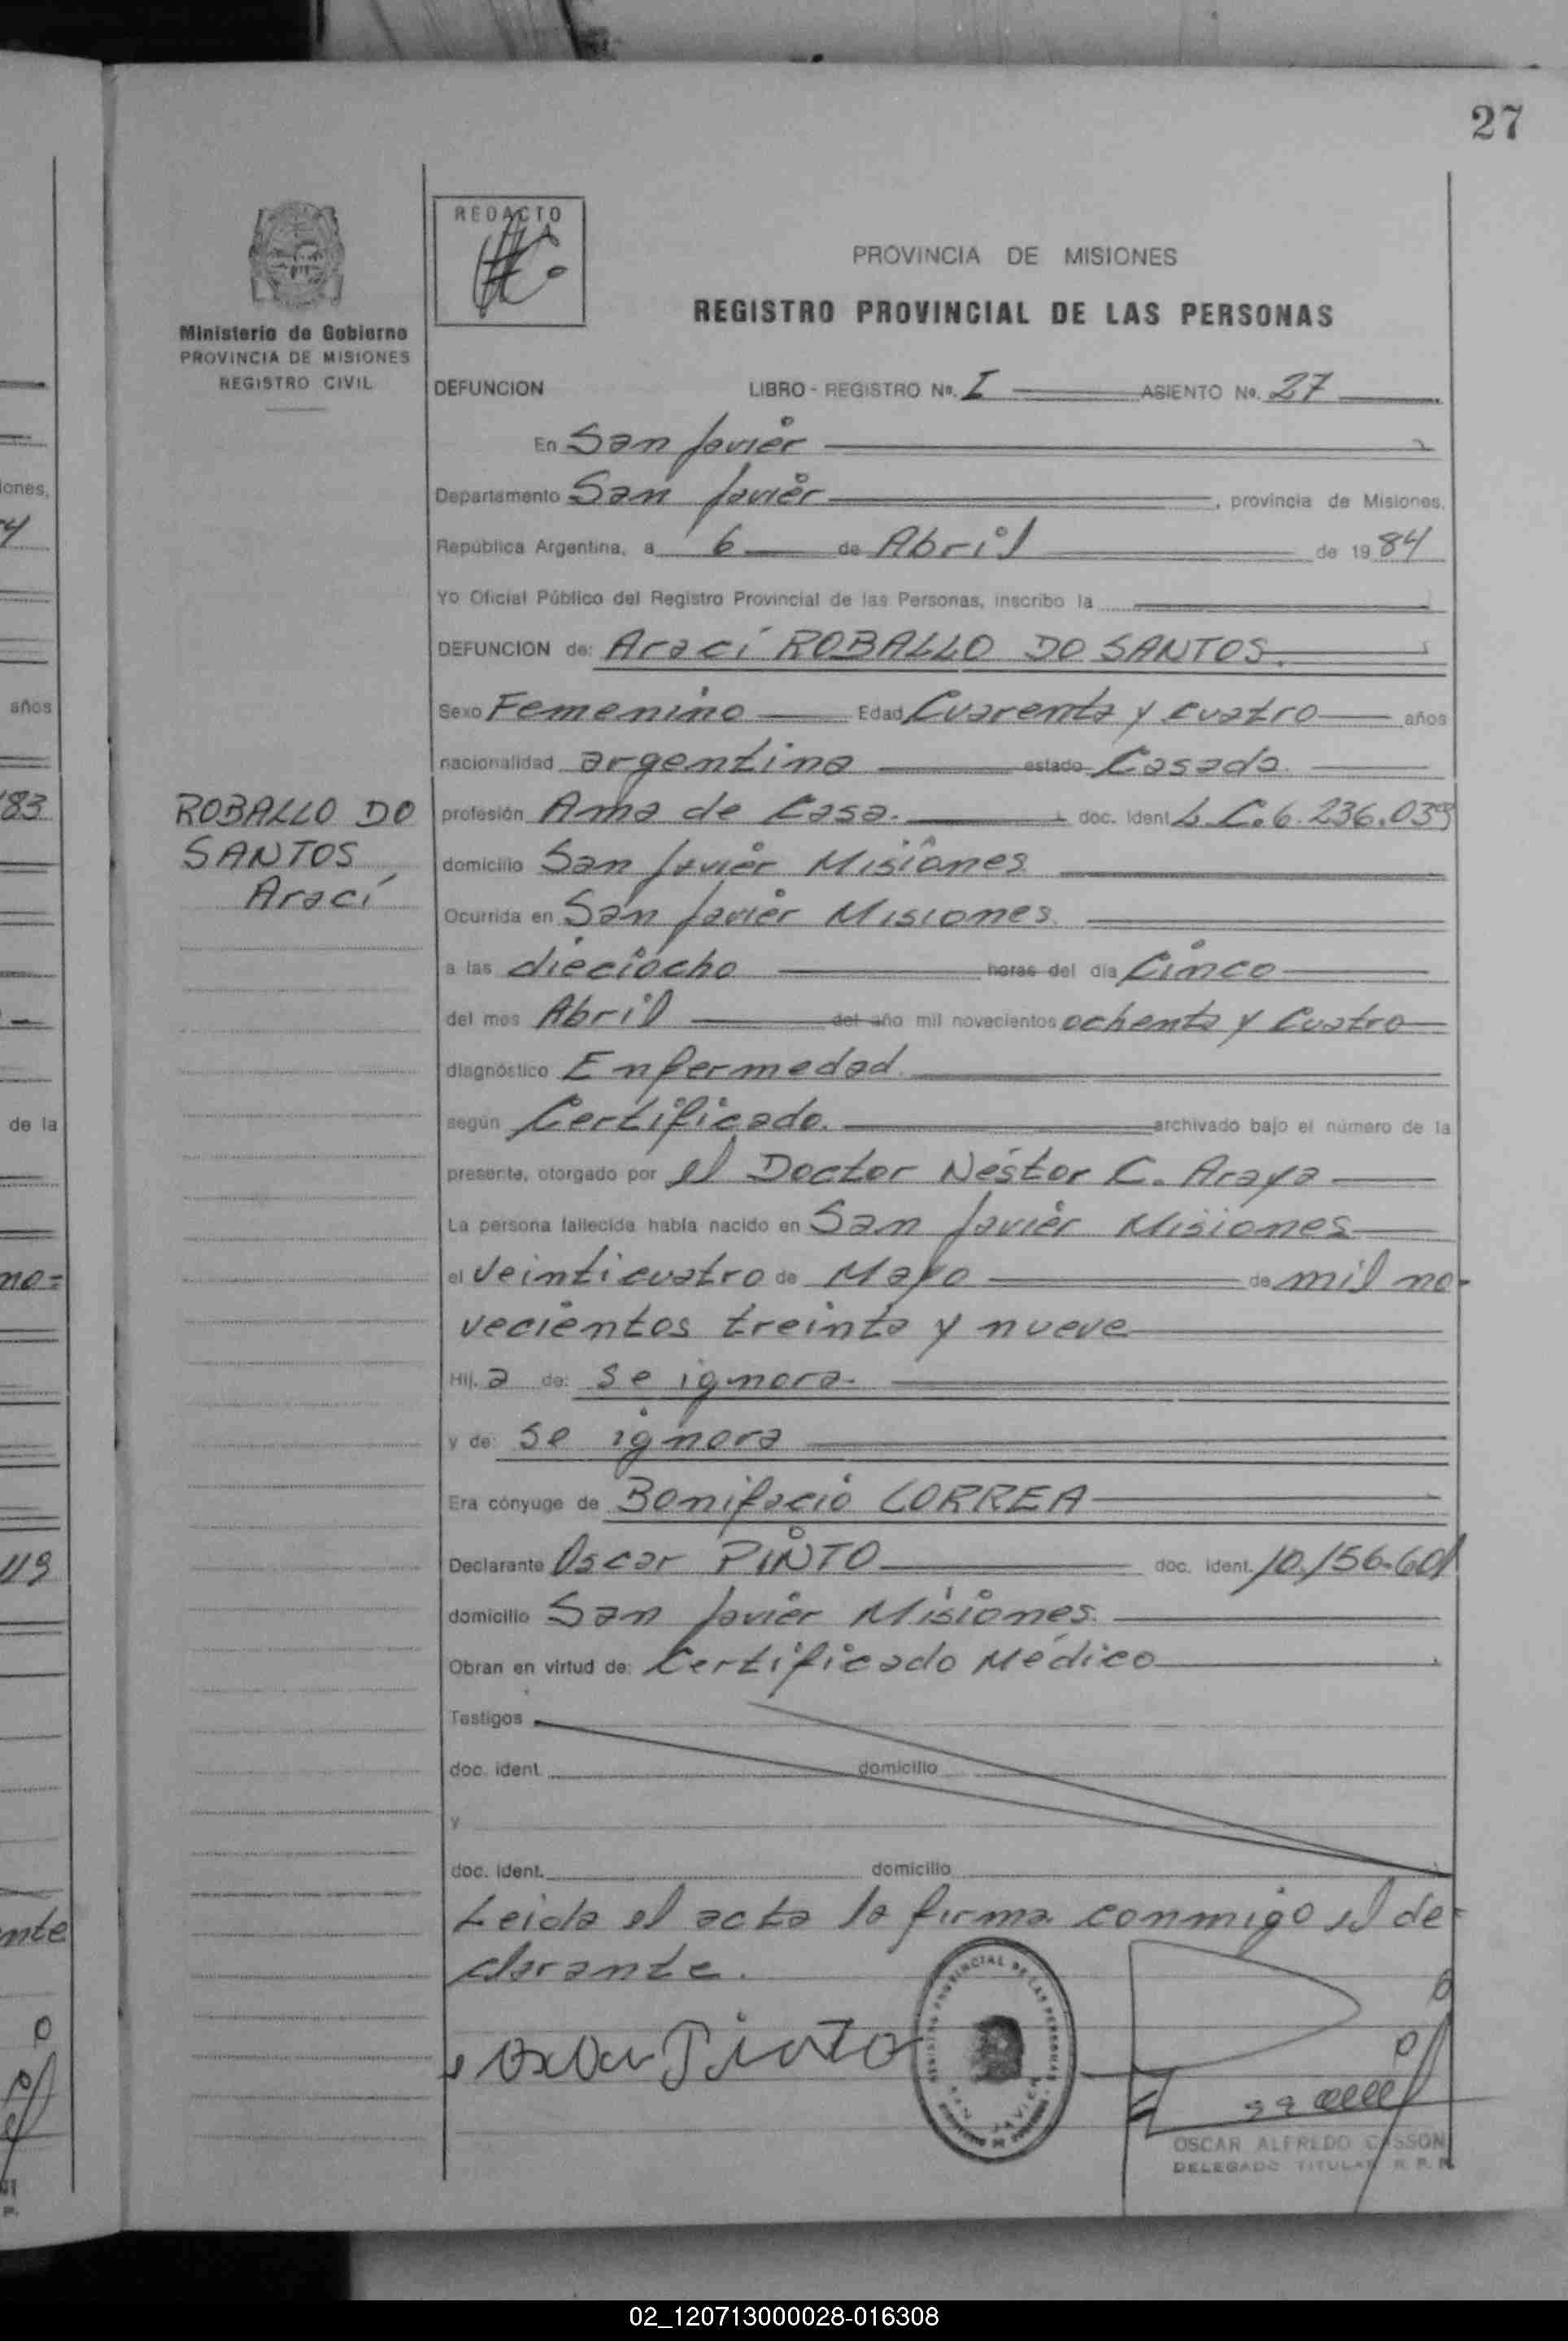 27
REDACTO
PROVINCIA DE MISIONES
REGISTRO PROVINCIAL DE LAS PERSONAS
Ministerio de Gobierno
PROVINCIA DE MISIONES
REGISTRO CIVIL
DEFUNCION LIBRO - REGISTRO No. I ASIENTO No. 27
En San Javier
Departamento San Javier, provincia de Misiones,
República Argentina, a 6 de Abril de 1984
Yo Oficial Público del Registro Provincial de las Personas, inscribo la
DEFUNCION de: Araci ROBALLO DO SANTOS.
Sexo Femenino Edad Cuarenta y cuatro años
nacionalidad argentina estado Casada.
ROBALLO DO
SANTOS
Arací
profesión Ama de Casa. doc. ident L.C. 6.236.039
domicilio San Javier Misiones
Ocurrida en San Javier Misiones.
a las dieciocho horas del día Cinco
del mes Abril del año mil novecientos ochenta y Cuatro
diagnóstico Enfermedad.
según Certificado. archivado bajo el número de la
presente, otorgado por el Doctor Néstor C. Araya
La persona fallecida había nacido en San Javier Misiones
el Veinticuatro de Mayo de mil no-
vecientos treinta y nueve
Hij.a de: se ignora.
y de: se ignora
Era cónyuge de Bonifacio CORREA
Declarante Oscar PINTO doc. ident. 10.156.601
domicilio San Javier Misiones.
Obran en virtud de: Certificado Médico
Testigos
doc. ident. domicilio
y
doc. ident. domicilio
Leida el acta la firma conmigo el de-
clarante.
Pinto
REGISTRO PROVINCIAL DE LAS PERSONAS
SAN JAVIER
OSCAR ALFREDO CASSONI
DELEGADO TITULAR R. P. P.
iones,
años
83
de la
no=
119
nte
02_120713000028-016308